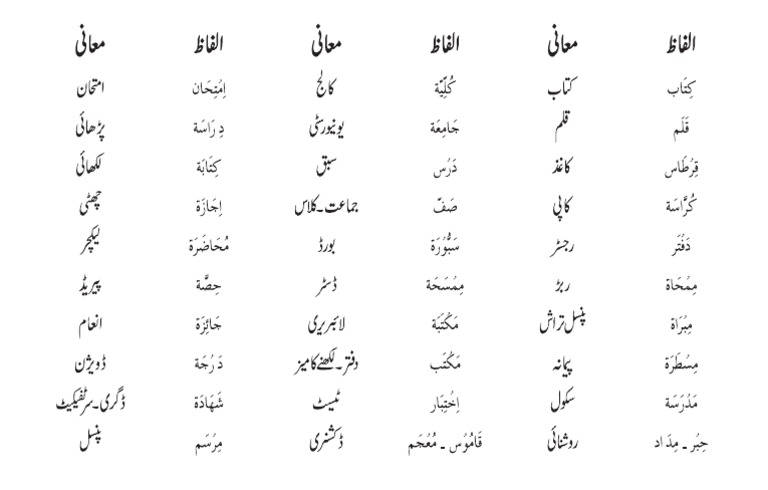 الفاظ معانی الفاظ معانی الفاظ معانی
کِتَاب کتاب کُلِّیَّة کالج اِمْتِحَان امتحان
قَلَم قلم جَامِعَة یونیورسٹی دِرَاسَة پڑھائی
قِرْطَاس کاغذ دَرْس سبق کِتَابَة لکھائی
کُرَّاسَة کاپی صَفّ جماعت۔کلاس اِجَازَة چھٹی
دَفْتَر رجسٹر سَبُّوْرَة بورڈ مُحَاضَرَة لیکچر
مِمْحَاة ربڑ مِمْسَحَة ڈسٹر حِصَّة پیریڈ
مِبْرَاة پنسل تراش مَکْتَبَة لائبریری جَائِزَة انعام
مِسْطَرَة پیمانہ مَکْتَب دفتر۔لکھنے کا میز دَرْجَة ڈویژن
مَدْرَسَة سکول اِخْتِبَار ٹیسٹ شَهَادَة ڈگری۔سرٹیفیکیٹ
حِبْر ۔ مِدَاد روشنائی قَامُوْس ۔ مُعْجَم ڈکشنری مِرْسَم پنسل